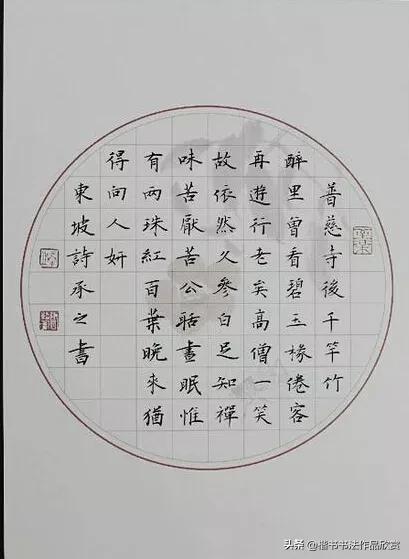 普慈寺後千竿竹
醉里曾看碧玉椽倦客
再遊行老矣高僧一笑
故依然久參白足知禪
味苦厭苦公聒晝眠惟
有两珠紅百葉晚來猶
得向人妍
東坡詩承之書
头条 @楷书书法作品欣赏